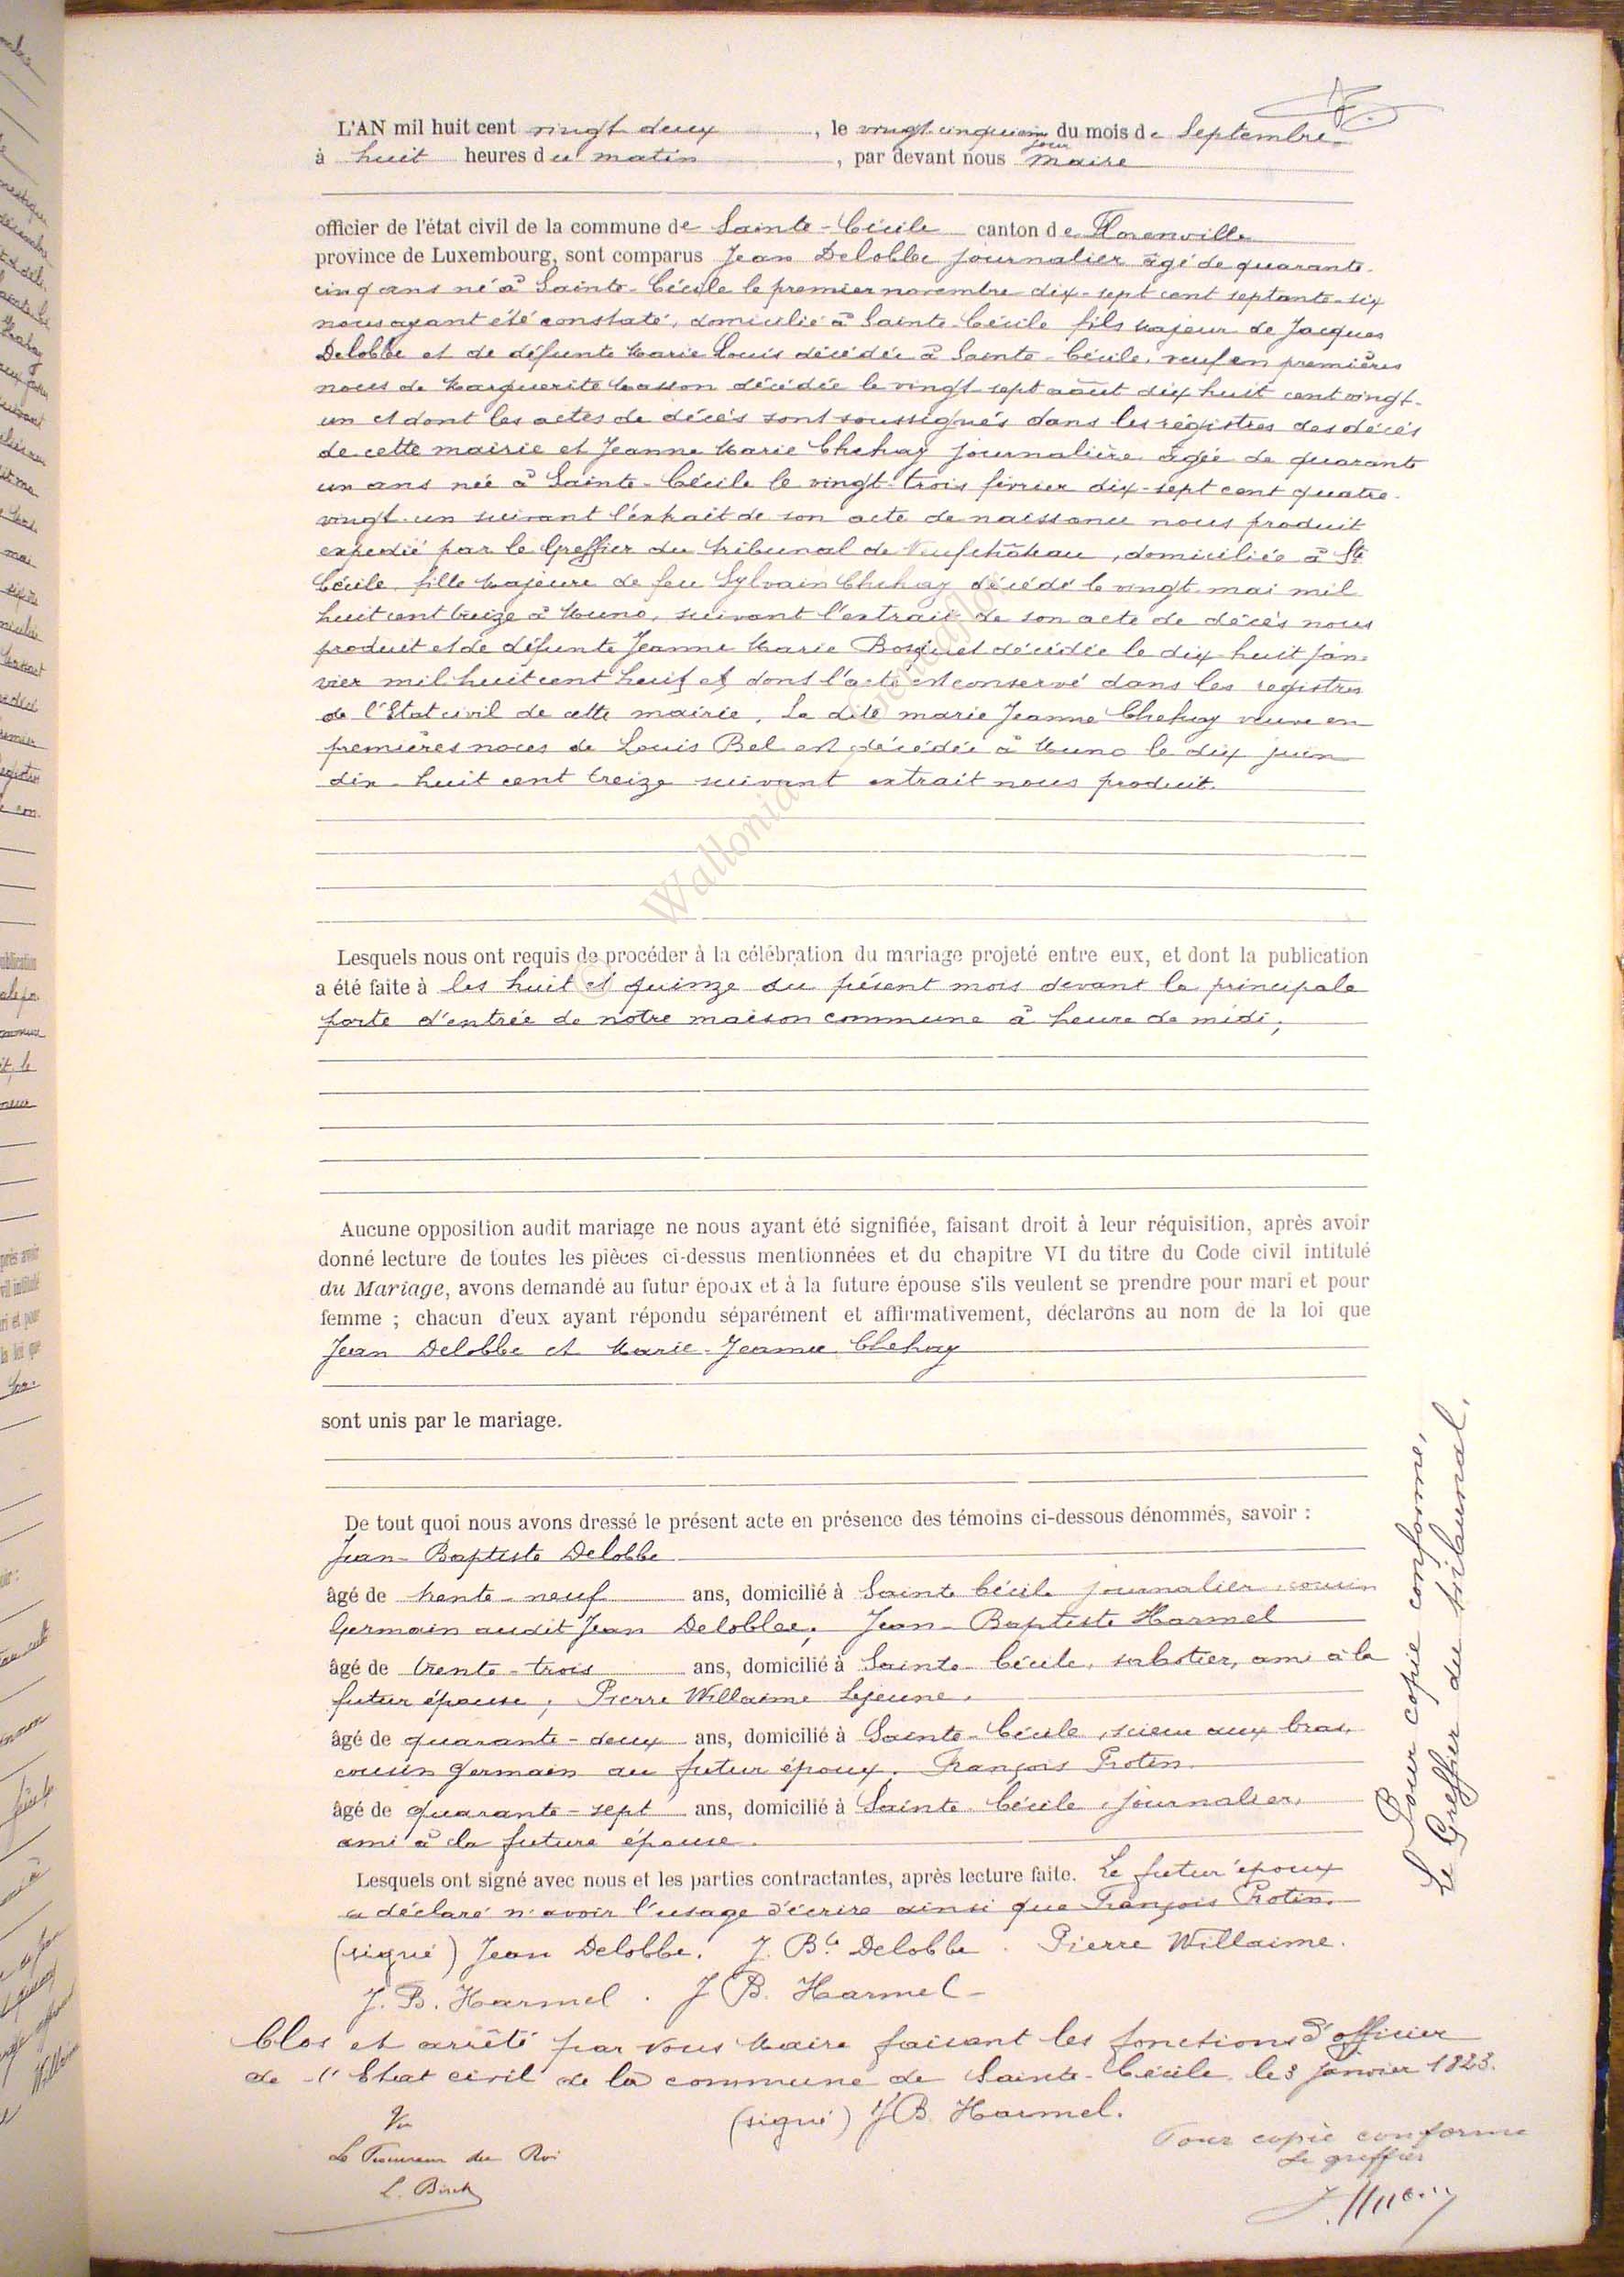 L'AN mil huit cent vingt deux, le vingt cinquième jour du mois de Septembre
à huit heures du matin, par devant nous Maire
officier de l'état civil de la commune de Sainte-Cécile canton de Florenville
province de Luxembourg, sont comparus Jean Delobbe journalier âgé de quarante-
cinq ans né à Sainte-Cécile le premier novembre dix-sept cent septante-six
nous ayant été constaté, domicilié à Sainte-Cécile fils majeur de Jacques
Delobbe et de défunte Marie Louis décédée à Sainte-Cécile, veuf en premières
noces de Marguerite Masson décédée le vingt-sept août dix huit cent vingt-
un et dont les actes de décès sont soussignés dans les régistres des décès
de cette mairie et Jeanne Marie Chehay journalière âgée de quarante
un ans née à Sainte-Cécile le vingt-trois février dix-sept cent quatre-
vingt-un suivant l'extrait de son acte de naissance nous produit
expedié par le Greffier du tribunal de Neufchâteau, domiciliée à Ste
Cécile, fille majeure de feu Sylvain Chehay décédé le vingt mai mil
huit cent treize à Muno, suivant l'extrait de son acte de décès nous
produit et de défunte Jeanne Marie Bosquet décédée le dix-huit jan-
vier mil huit cent huit et dont l'acte est conservé dans les registres
de l'Etat civil de cette mairie. La dite marie Jeanne Chehay veuve en
premières noces de Louis Bel est décédée à Muno le dix juin
dix-huit cent treize suivant extrait nous produit.
Lesquels nous ont requis de procéder à la célébration du mariage projeté entre eux, et dont la publication
a été faite à les huit et quinze du présent mois devant la principale
porte d'entrée de notre maison commune à heure de midi;
Aucune opposition audit mariage ne nous ayant été signifiée, faisant droit à leur réquisition, après avoir
donné lecture de toutes les pièces ci-dessus mentionnées et du chapitre VI du titre du Code civil intitulé
du Mariage, avons demandé au futur époux et à la future épouse s'ils veulent se prendre pour mari et pour
femme ; chacun d'eux ayant répondu séparément et affirmativement, déclarons au nom de la loi que
Jean Delobbe et Marie-Jeanne Chehay
sont unis par le mariage.
De tout quoi nous avons dressé le présent acte en présence des témoins ci-dessous dénommés, savoir :
Jean-Baptiste Delobbe
âgé de trente-neuf ans, domicilié à Sainte Cécile journalier, cousin
Germain audit Jean Delobbe; Jean-Baptiste Harmel
âgé de trente-trois ans, domicilié à Sainte-Cécile, sabotier, ami à la
futur épouse; Pierre Willaime Lejeune,
âgé de quarante-deux ans, domicilié à Sainte-Cécile, scieur aux bras,
cousin germain au futur époux. François Protin
âgé de quarante-sept ans, domicilié à Sainte-Cécile, journalier,
ami à la future épouse.
Lesquels ont signé avec nous et les parties contractantes, après lecture faite. Le futur époux
a déclaré n'avoir l'usage d'écrire ainsi que François Protin.
(signé) Jean Delobbe. J. Bte Delobbe. Pierre Willaime.
J. B. Harmel. J B. Harmel-
Clos et arrêté par nous Maire faisant les fonctions d'officier
de l'Etat civil de la commune de Sainte-Cécile le 3 janvier 1823.
(signé) J B. Harmel.
Vu
Le Procureur du Roi
Pour copie conforme
Le greffier
Pour copie conforme,
Le Greffier du tribunal.
© Wallonia